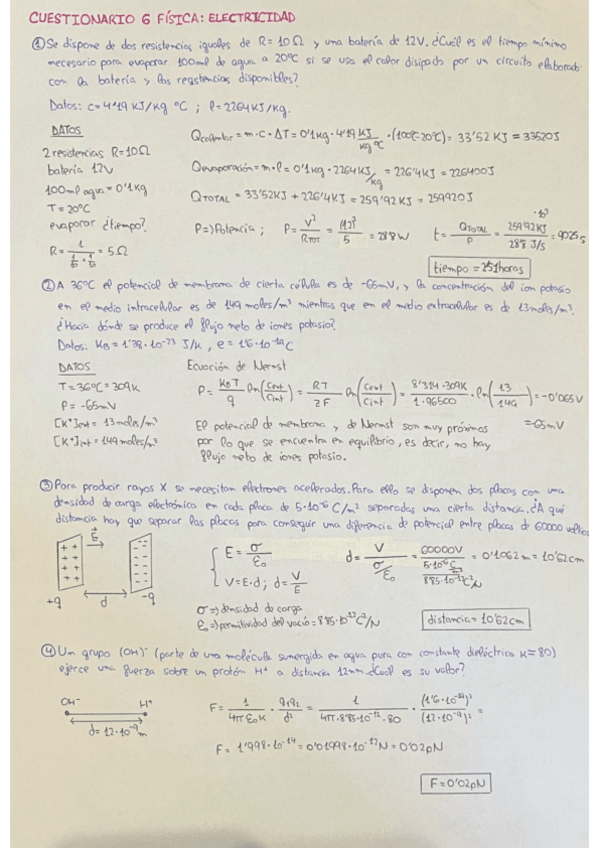 CUESTIONARIO 6 FÍSICA: ELECTRICIDAD
① Se dispone de dos resistencias iguales de R= 10Ω y una batería de 12V. ¿Cuál es el tiempo mínimo
necesario para evaporar 100ml de agua a 20ºC si se usa el calor disipado por un circuito elaborado
con la batería y las resistencias disponibles?
Datos: c= 4'19 KJ/Kg ºC ; l= 2264KJ/Kg.
DATOS
2 resistencias R=10Ω
batería 12V
100ml agua = 0'1Kg
T= 20ºC
evaporar ¿tiempo?
R= 1/(1/10 + 1/10) = 5Ω
Qcalentar = m·c·ΔT = 0'1Kg · 4'19 KJ/KgºC · (100ºC-20ºC) = 33'52 KJ = 33520J
Qevaporación = m·l = 0'1Kg · 2264 KJ/Kg = 226'4KJ = 226400J
QTOTAL = 33'52KJ + 226'4KJ = 259'92KJ = 259920J
P=>Potencia ; P= V²/RTOT = (12)²/5 = 28'8W
t= QTOTAL/P = 259'92KJ ·10³/28'8 J/s = 9025s
tiempo = 2'51horas
② A 36ºC el potencial de membrana de cierta célula es de -65mV, y la concentración del ion potasio
en el medio intracelular es de 149 moles/m³ mientras que en el medio extracelular es de 13moles/m³.
¿Hacia dónde se produce el flujo neto de iones potasio?
Datos: KB= 1'38·10⁻²³ J/K , e= 1'6·10⁻¹⁹C
DATOS
T= 36ºC = 309K
P= -65mV
[K⁺]ext = 13moles/m³
[K⁺]int = 149moles/m³
Ecuación de Nernst
P= KBT/q ln(Cext/Cint) = RT/ZF ln(Cext/Cint) = 8'314·309K/1·96500 · ln(13/149) = -0'065V
= -65mV
El potencial de membrana y de Nernst son muy próximos
por lo que se encuentra en equilibrio, es decir, no hay
flujo neto de iones potasio.
③ Para producir rayos X se necesitan electrones acelerados. Para ello se disponen dos placas con una
densidad de carga electrónica en cada placa de 5·10⁻⁶ C/m² separadas una cierta distancia. ¿A qué
distancia hay que separar las placas para conseguir una diferencia de potencial entre placas de 60000 voltios
E
+q
d
-q
E= σ/ε₀
V=E·d ; d= V/E
d= V/(σ/ε₀) = 60000V/(5·10⁻⁶C/8'85·10⁻¹²C²/N) = 0'1062m = 10'62cm
σ => densidad de carga
ε₀ => permitividad del vacío = 8'85·10⁻¹²C²/N
distancia = 10'62cm
④ Un grupo (OH)⁻ (parte de una molécula sumergida en agua pura con constante dieléctrica K=80)
ejerce una fuerza sobre un protón H⁺ a distancia 12nm. ¿Cuál es su valor?
OH⁻ H⁺
d= 12·10⁻⁹m
F= 1/4πε₀K · q₁q₂/d² = 1/4π·8'85·10⁻¹²·80 · (1'6·10⁻¹⁹)²/(12·10⁻⁹)² =
F= 1'998·10⁻¹⁴ = 0'01998·10⁻¹²N = 0'02pN
F= 0'02pN